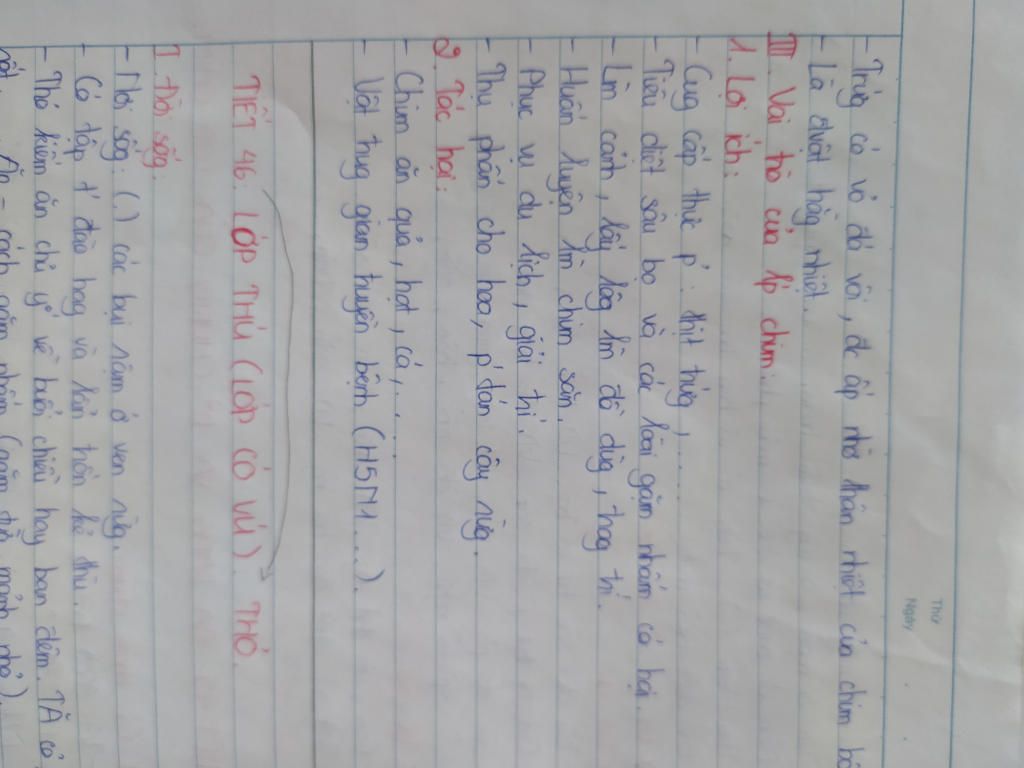 Thứ
Ngày
- Trứg có vỏ đá vôi, đc ấp nhờ thân nhiệt của chim bố
- Là đvật hằg nhiệt.
III. Vai trò của lp chim.
1. Lợi ích:
- Cug cấp thực p': thịt trứg,....
- Tiêu diệt sâu bọ và các loài gặm nhấm có hại.
- Làm cảnh, lấy lôg làm đồ dùg, trag trí.
- Huấn luyện làm chim săn.
- Phục vụ du lịch, giải trí.
- Thụ phấn cho hoa, p' tán cây rừg.
2. Tác hại:
- Chim ăn quả, hạt, cá,...
- Vật trug gian truyền bệnh (H5N1...).
TIẾT 46: LỚP THÚ (LỚP CÓ VÚ). THỎ.
I. Đời sốg.
- Nơi sốg: (.) các bụi rậm ở ven rừg.
- Có tập t' đào hag và lẩn trốn kẻ thù.
- Thỏ kiếm ăn chủ y' về buổi chiều hay ban đêm. TĂ cỏ
cách gặm nhấm (gặm từg mảnh nhỏ).